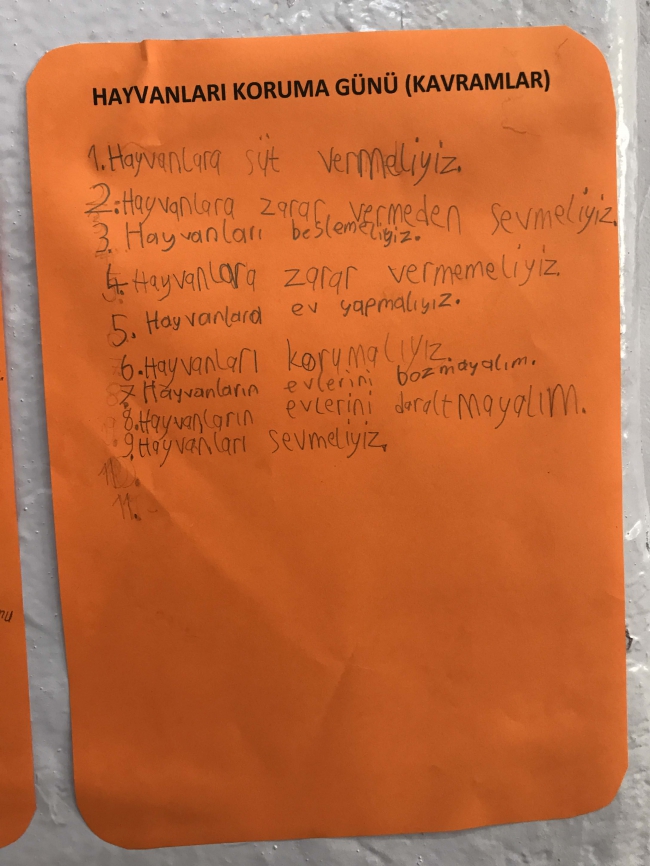 HAYVANLARI KORUMA GÜNÜ (KAVRAMLAR)
1. Hayvanlara süt vermeliyiz.
2. Hayvanlara zarar vermeden sevmeliyiz.
3. Hayvanları beslemeliyiz.
4. Hayvanlara zarar vermemeliyiz.
5. Hayvanlara ev yapmalıyız.
6. Hayvanları korumalıyız.
7. Hayvanların evlerini bozmayalım.
8. Hayvanların evlerini daraltmayalım.
9. Hayvanları sevmeliyiz.
11.